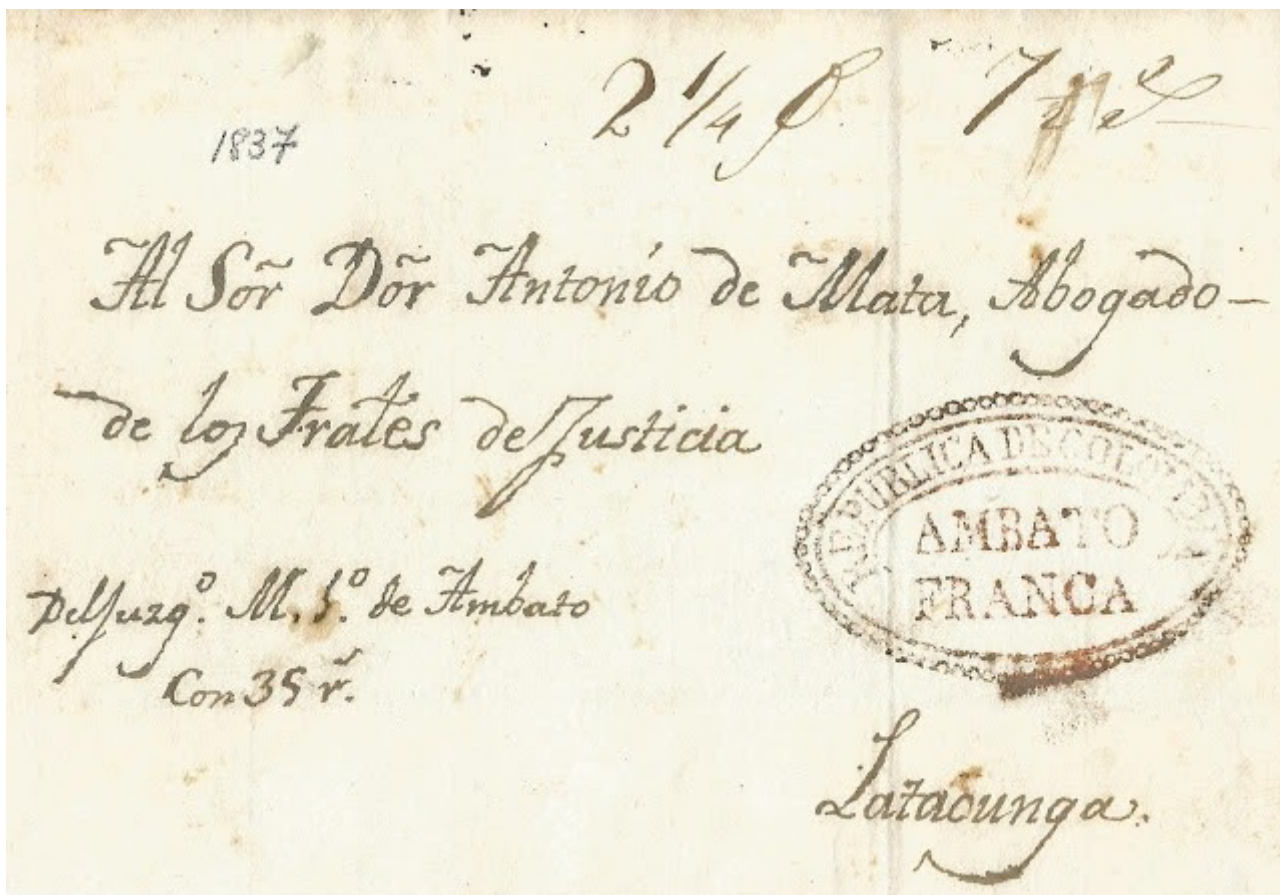 2 1/4
1837
Al Sõr Dõr Antonio de Mata, Abogado
de los Frales de Justicia
REPUBLICA DE COLOMBIA
AMBATO
FRANCA
Del Juzgº. M. 1º. de Ambato
Con 35 r̃.
Latacunga.